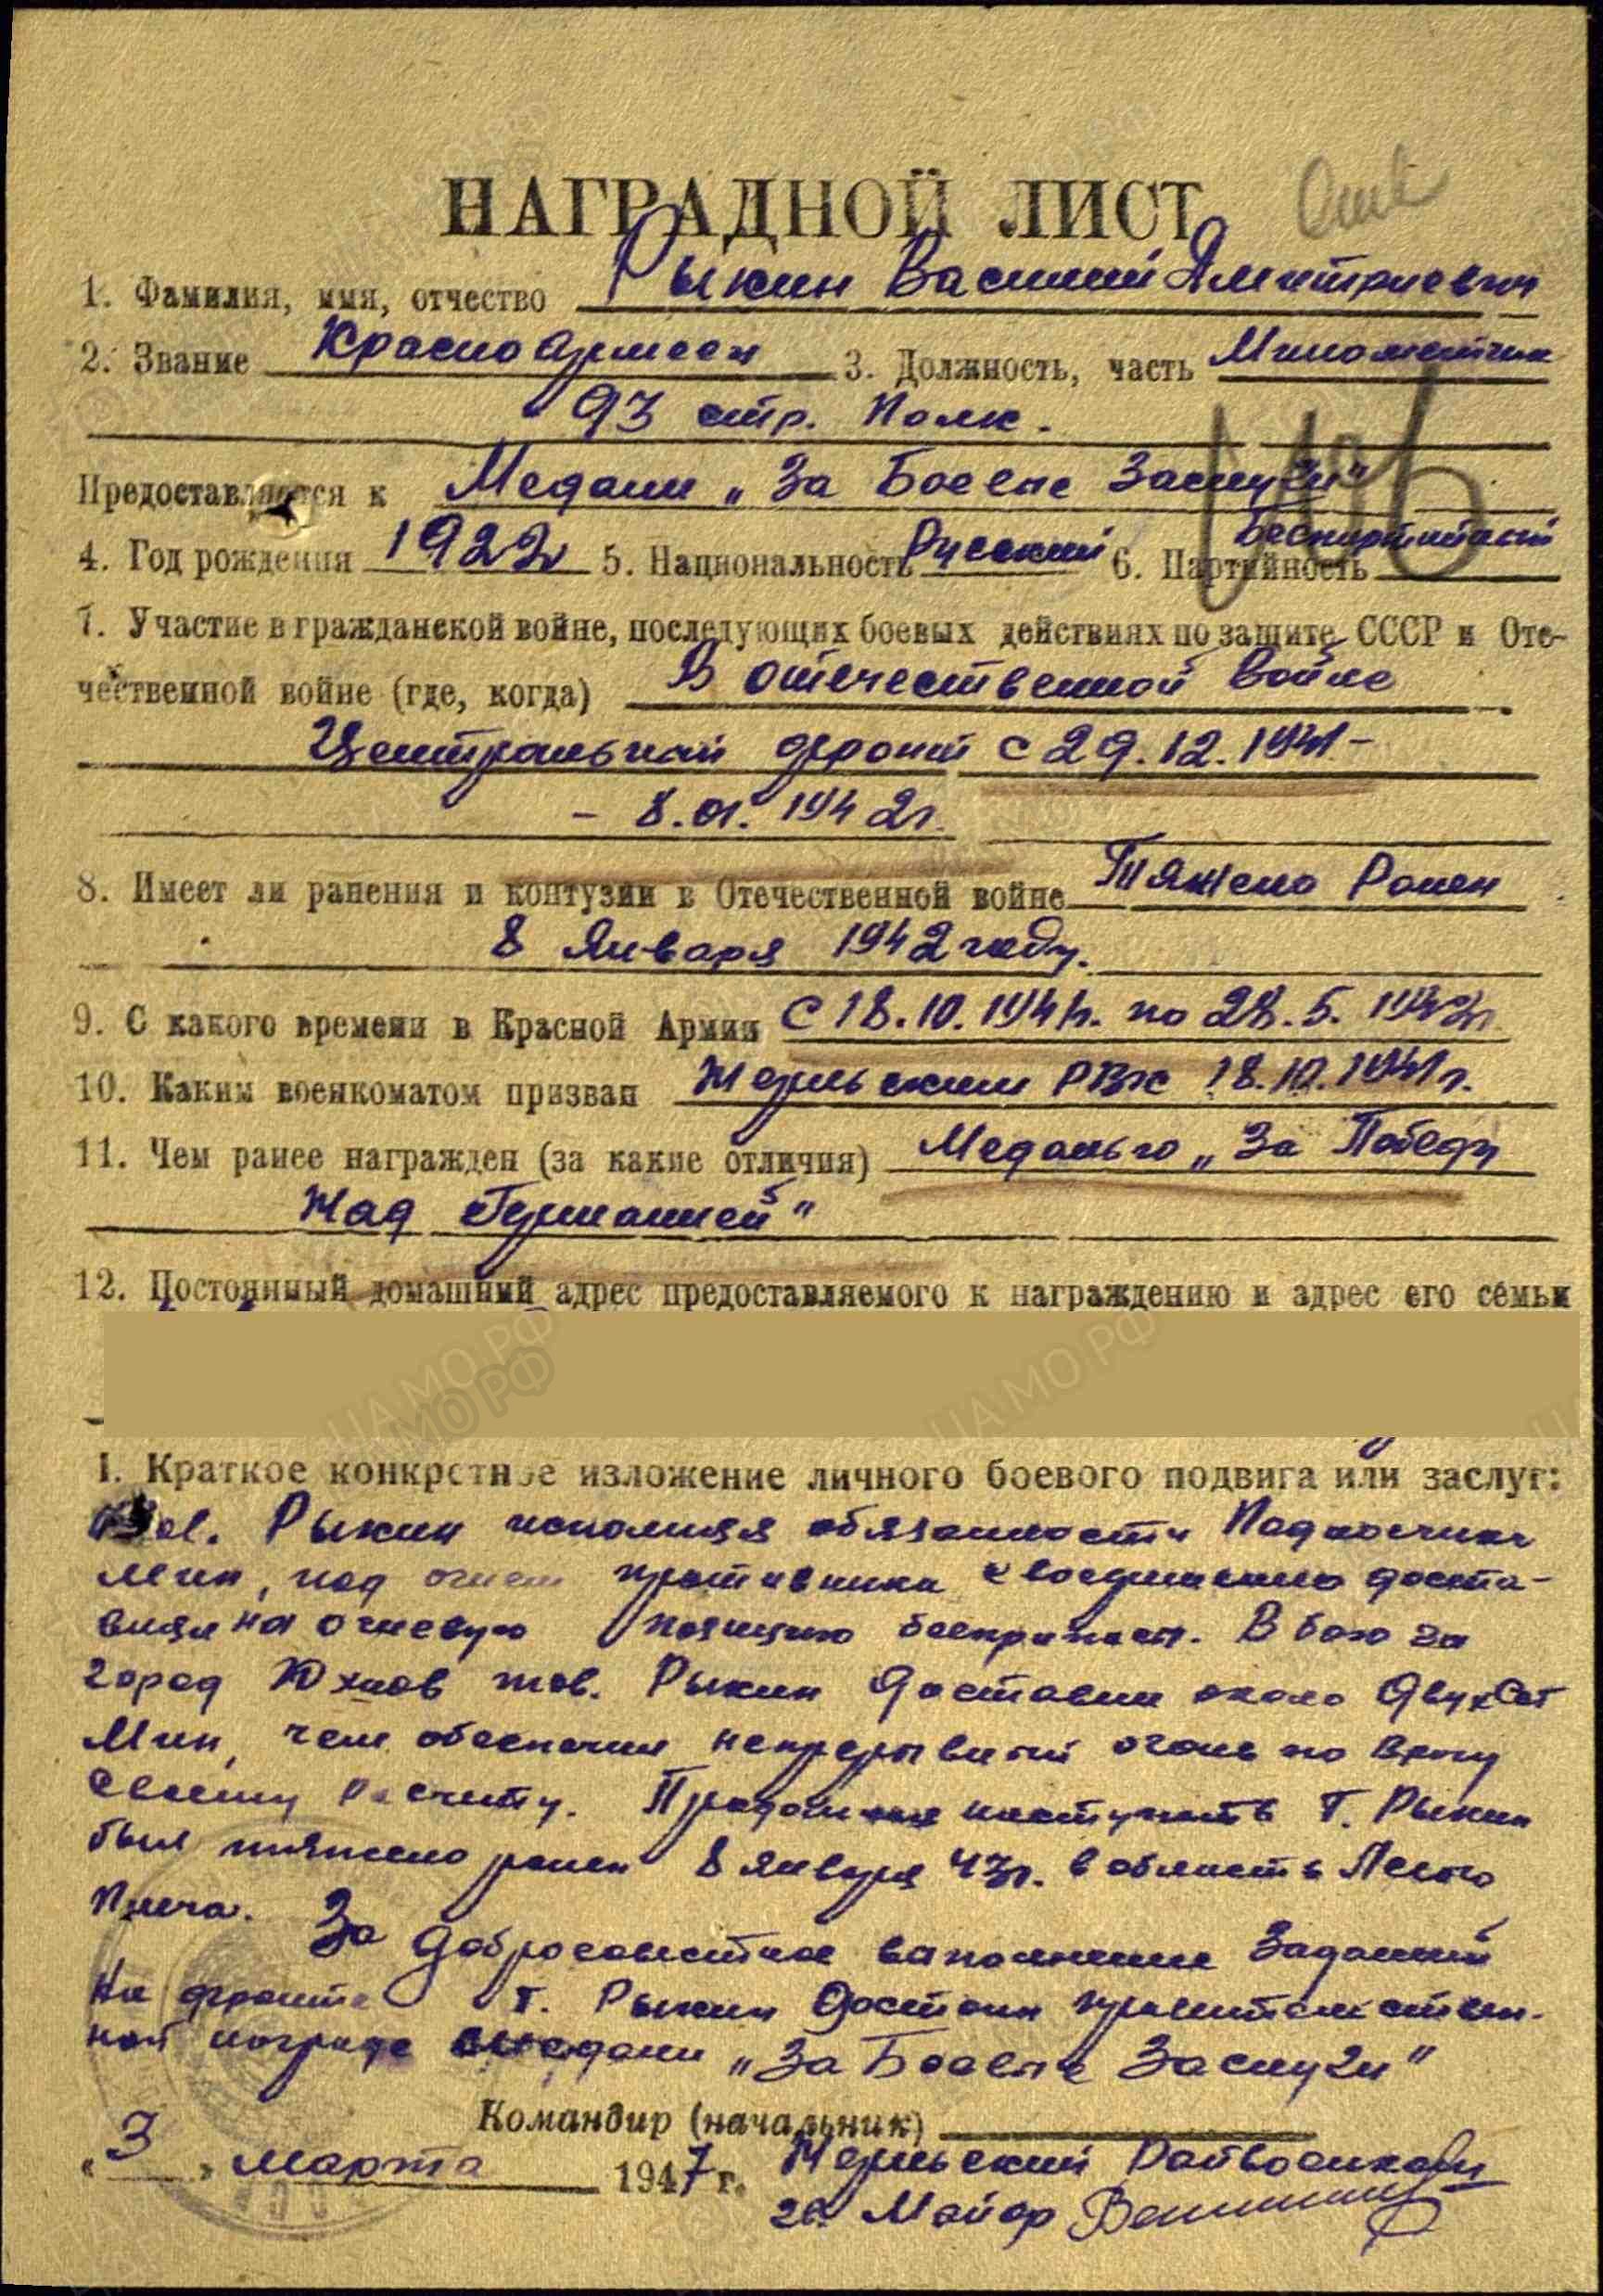 НАГРАДНОЙ ЛИСТ
1. Фамилия, имя, отчество Рыкин Василий Дмитриевич
2. Звание Красноармеец 3. Должность, часть Минометчик
93 стр. Полк.
Предоставляется к Медали „За Боевые Заслуги“
4. Год рождения 1922 5. Национальность Русский 6. Партийность Беспартийный
7. Участие в гражданской войне, последующих боевых действиях по защите СССР и Оте-
чественной войне (где, когда) В отечественной войне
Центральный фронт с 29.12.1941 -
- 8.01.1942 г.
8. Имеет ли ранения и контузии в Отечественной войне Тяжело Ранен
8 Января 1942 году.
9. С какого времени в Красной Армии С 18.10.1941 г. по 28.5.1942 г.
10. Каким военкоматом призван РВК 18.10.1941 г.
11. Чем ранее награжден (за какие отличия) Медалью „За Победу
Над Германией“
12. Постоянный домашний адрес предоставляемого к награждению и адрес его семьи
1. Краткое конкретное изложение личного боевого подвига или заслуг:
Тов. Рыкин исполняя обязанности Подносчика
Мин, под огнем противника своевременно доста-
влял на огневую позицию боеприпасы. В бою за
город Юхнов тов. Рыкин доставил около двухсот
Мин, чем обеспечил непрерывный огонь по врагу
своему расчету. Продолжая наступать Т. Рыкин
был тяжело ранен 8 января 43 г. в область Левого
Плеча. За добросовестное выполнение Заданий
На фронте т. Рыкин достоин правительствен-
ной награде медали „За Боевые Заслуги“
Командир (начальник)
„3„ марта 1947 г. Райвоенком
гв. Майор